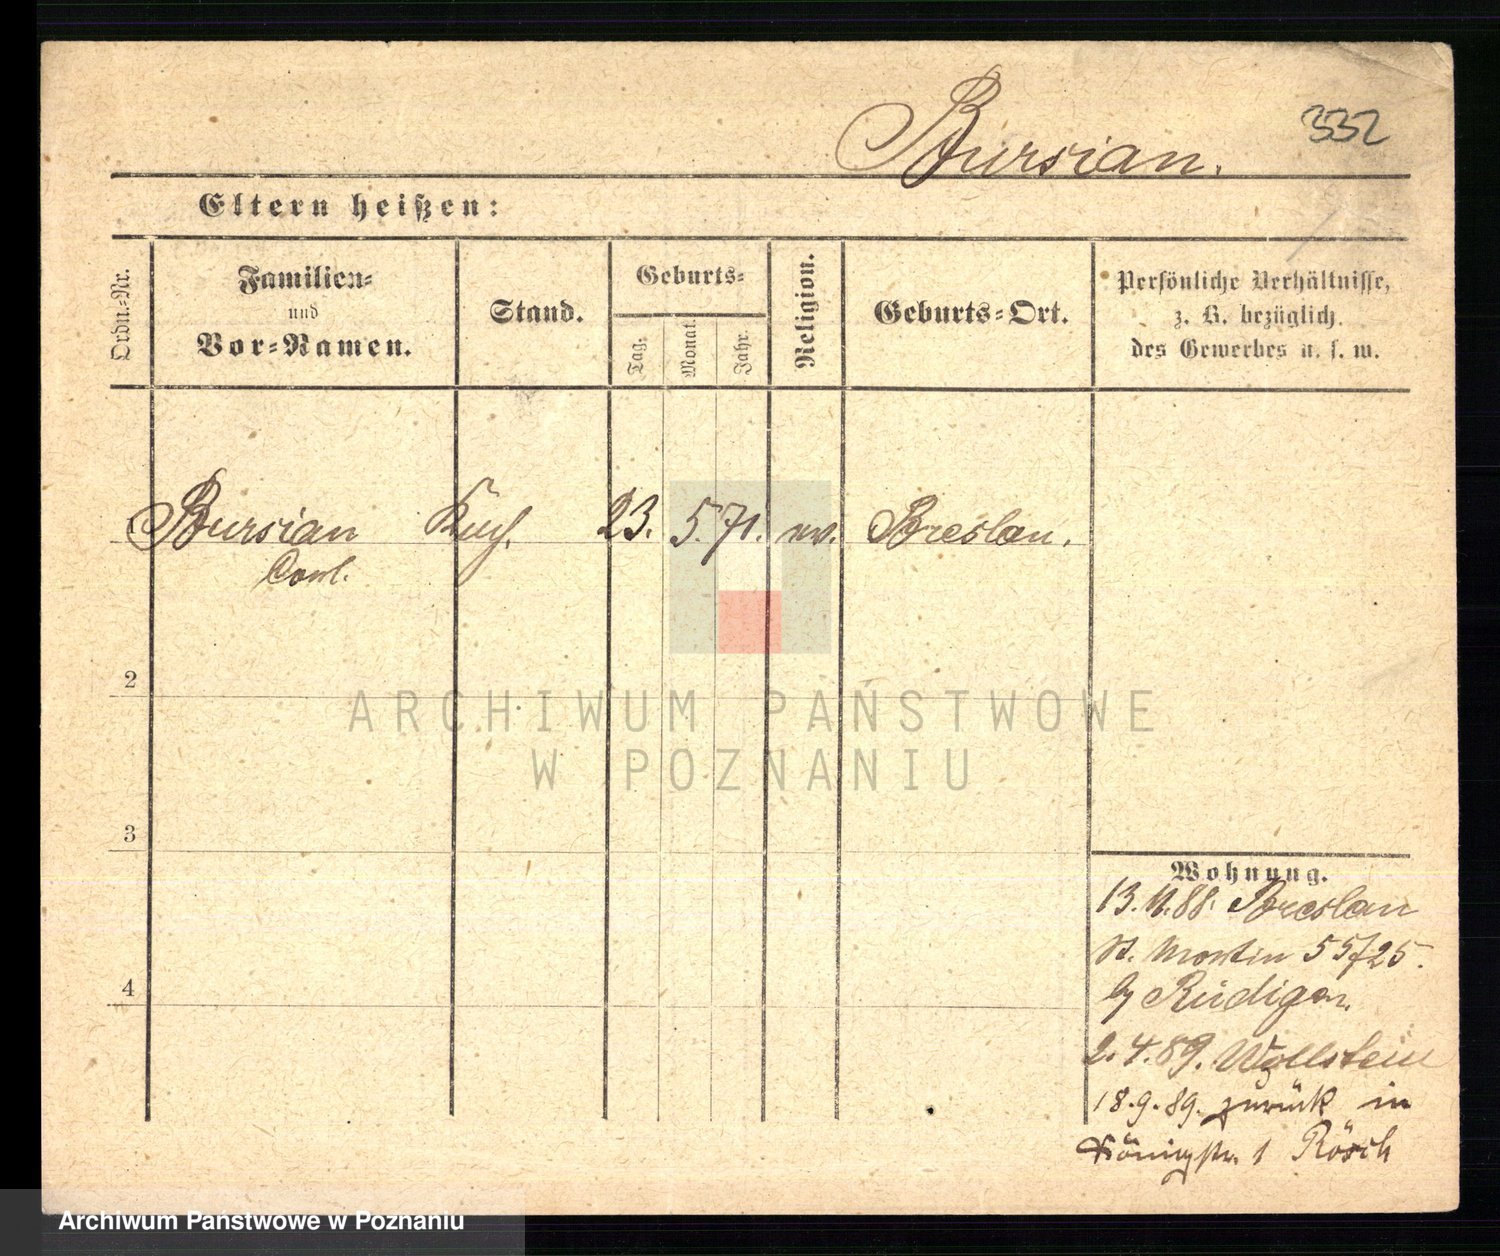 332
Bursian.
Eltern heißen:
Ordn.-Nr.
Familien-
und
Vor-Namen.
Stand.
Geburts-
Tag.
Monat.
Jahr.
Religion.
Geburts-Ort.
Persönliche Verhältnisse,
z. B. bezüglich
des Gewerbes u. s. w.
Bursian 23. 5. 71. Breslau.
Carl.
2
3
4
ARCHIWUM PAŃSTWOWE
W POZNANIU
Wohnung.
13.11.88. Breslau
St. Martin 55/25.
Rüdiger.
2.4.89. Wollstein
18.9.89. zurück in
Königstr. 1 Rösch
Archiwum Państwowe w Poznaniu